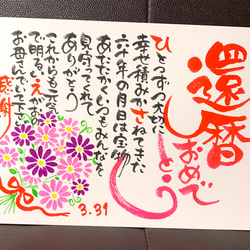 還暦
おめでとう
ひとつずつ大切に
幸せ積みかさねてきた
六十年の月日は宝物
あたたかくいつもみんなを
見守ってくれて
ありがとう
これからも元気
で明るいえがおの
お母さんでいて下さい
感謝
3.31